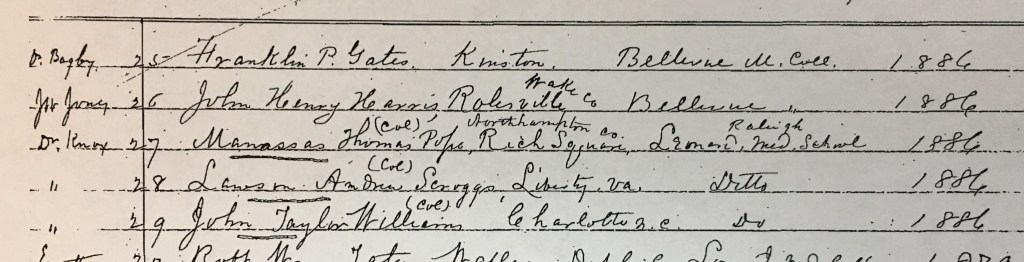 Dr. Bagby. 25 Franklin P. Gates. Kinston. Bellevue M. Coll. 1886
Wake
Jw Jones 26 John Henry Harris, Rolesville Co Bellevue " 1886
(Col) Northhampton Co. Raleigh
Dr. Knox 27 Manassas Thomas Pope, Rich Square, Leonard, Med. School 1886
(Col)
" 28 Lawson Andrew Scroggs, Liberty, Va. Ditto 1886
(Col)
" 29 John Taylor Williams Charlotte N.C. Do 1886